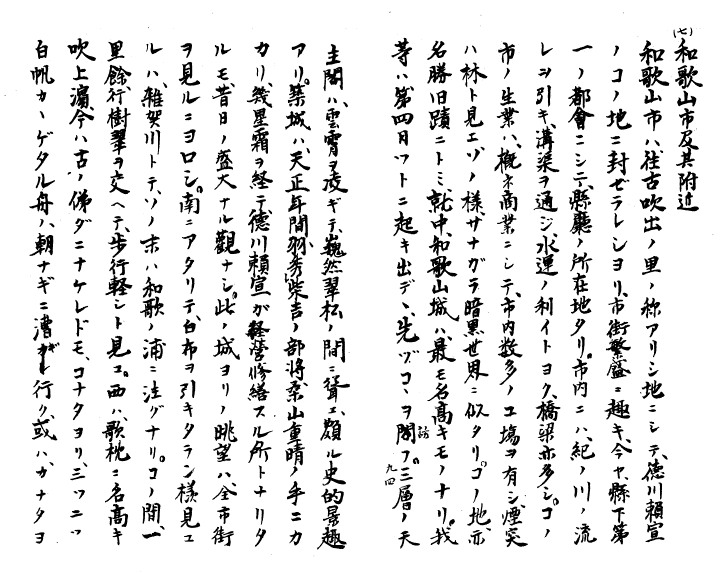 (七)
和歌山市及其附近
和歌山市ハ、往古吹出ノ里ノ称アリシ地ニシテ、徳川頼宣
ノコノ地ニ封ゼラレシヨリ、市街繁盛ニ趣キ、今ヤ、縣下第
一ノ都會ニシテ、縣廳ノ所在地タリ。市内ニハ、紀ノ川ノ流
レヲ引キ、溝渠ヲ通ジ、水運ノ利イトヨク、橋梁亦多シ。コノ
市ノ生業ハ、概ネ商業ニシテ、市内数多ノ工場ヲ有シ、煙突
ハ林ト見エ、ソノ様サナガラ暗黒世界ニ似タリ。コノ地亦
名勝旧蹟ニトミ、就中、和歌山城ハ、最モ名高キモノナリ。我
等ハ第四日ツトニ起キ出デヽ、先ヅコヽヲ訪フ。三層ノ天
九四
主閣ハ、雲霄ヲ凌ギテ、巍然翠松ノ間ニ聳エ、頗ル史的景趣
アリ。築城ハ、天正年間、羽柴秀吉ノ部将、桑山重晴ノ手ニカ
カリ、幾星霜ヲ経テ徳川頼宣ガ経営修繕スル所トナリタ
ルモ昔日ノ盛大ナル觀ナシ。此ノ城ヨリノ眺望ハ、全市街
ヲ見ルニヨロシ。南ニアタリテ、白布ヲ引キタラン様見ユ
ルハ、雜賀川トテ、ソノ末ハ和歌ノ浦ニ注グナリ。コノ間、一
里餘、行樹翠ヲ交ヘテ、歩行軽シト見ユ。西ハ、歌枕ニ名高キ
吹上濱、今ハ古ノ俤ダニナケレドモ、コナタヨリ、三ツニツ
白帆カヽゲタル舟ノ、朝ナギニ漕ガレ行ク、或ハ、カナタヨ